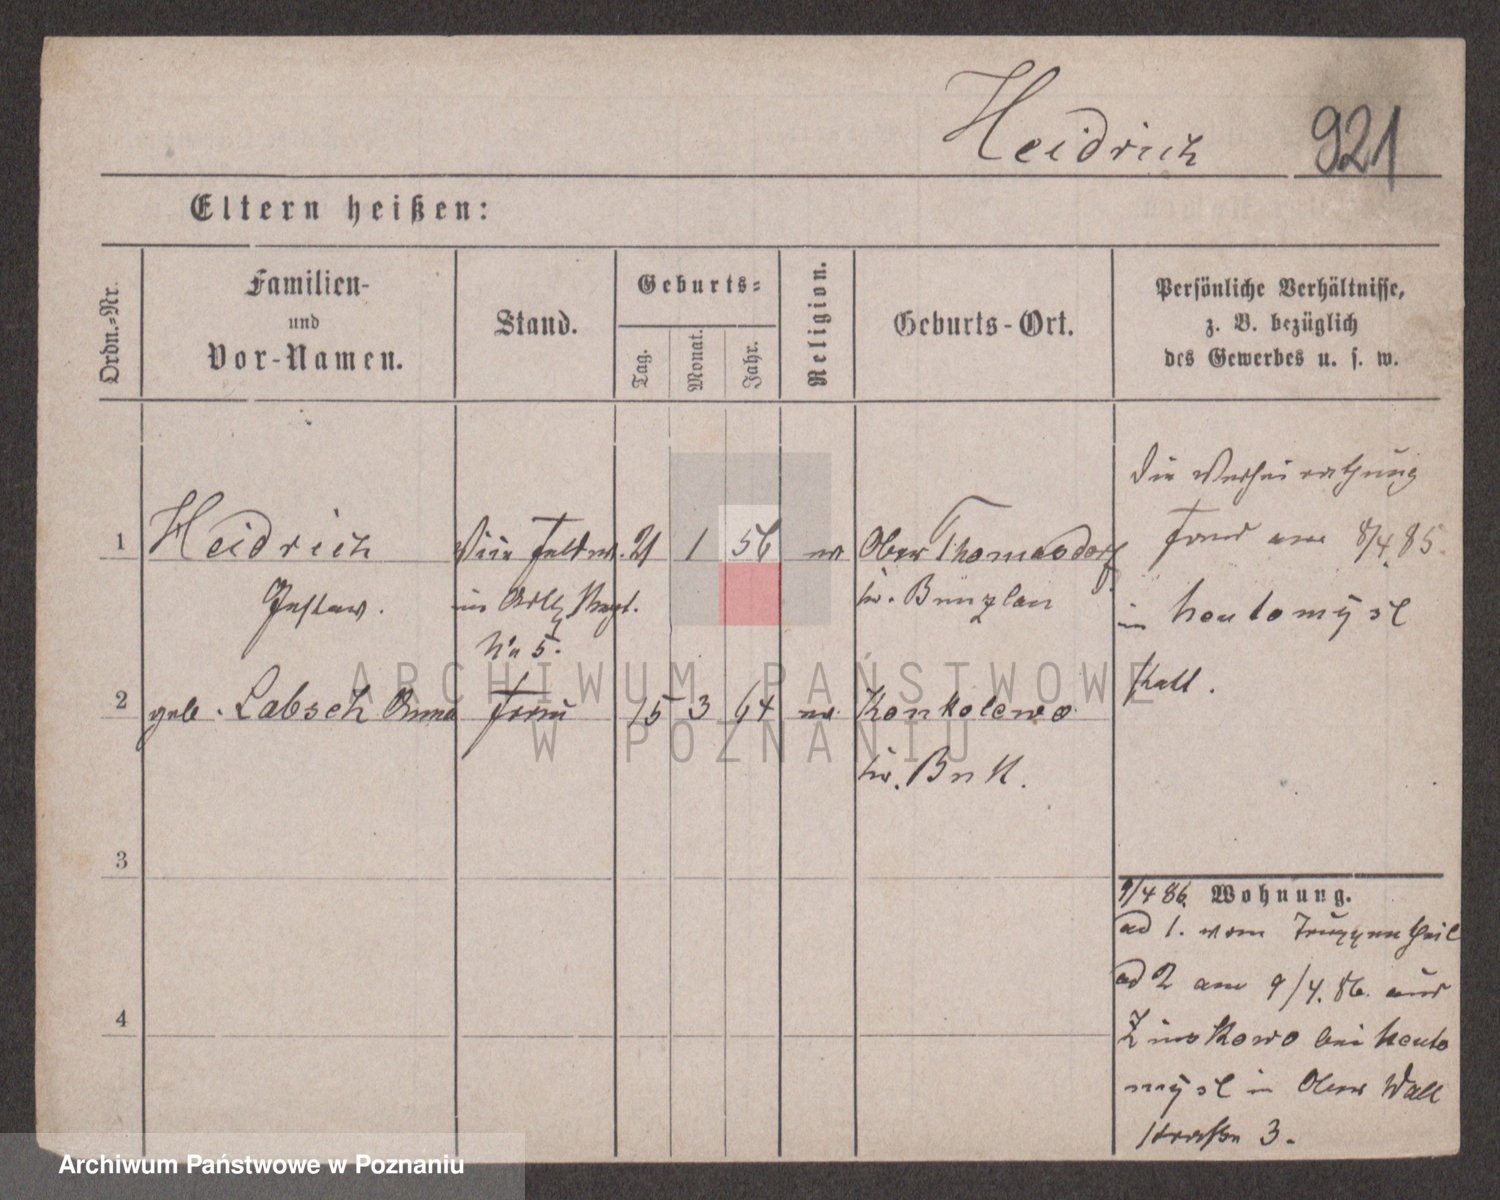 Heidrich 921
Eltern heißen:
Ordn.-Nr.
Familien-
und
Vor-Namen.
Stand.
Geburts-
Tag.
Monat.
Jahr.
Religion.
Geburts-Ort.
Persönliche Verhältnisse,
z. B. bezüglich
des Gewerbes u. s. w.
1 Heidrich Vice Feldw. 21 1 56 ev Ober Thomasdorf
Gustav. im Artl. Regt. Kr. Bunzlau
No 5.
2 geb. Labsch Anna Frau 15 3 64 ev Konkolewo
Kr. Buk.
3
4
Die Verheirathung
fand am 8/4. 85.
in Neutomysl
statt.
9/4 86. Wohnung.
ad 1. vom Truppentheil
ad 2 am 9/4. 86. aus
Zinskowo bei Neuto
mysl in Ober Wall
straße 3.
ARCHIWUM PAŃSTWOWE
W POZNANIU
Archiwum Państwowe w Poznaniu